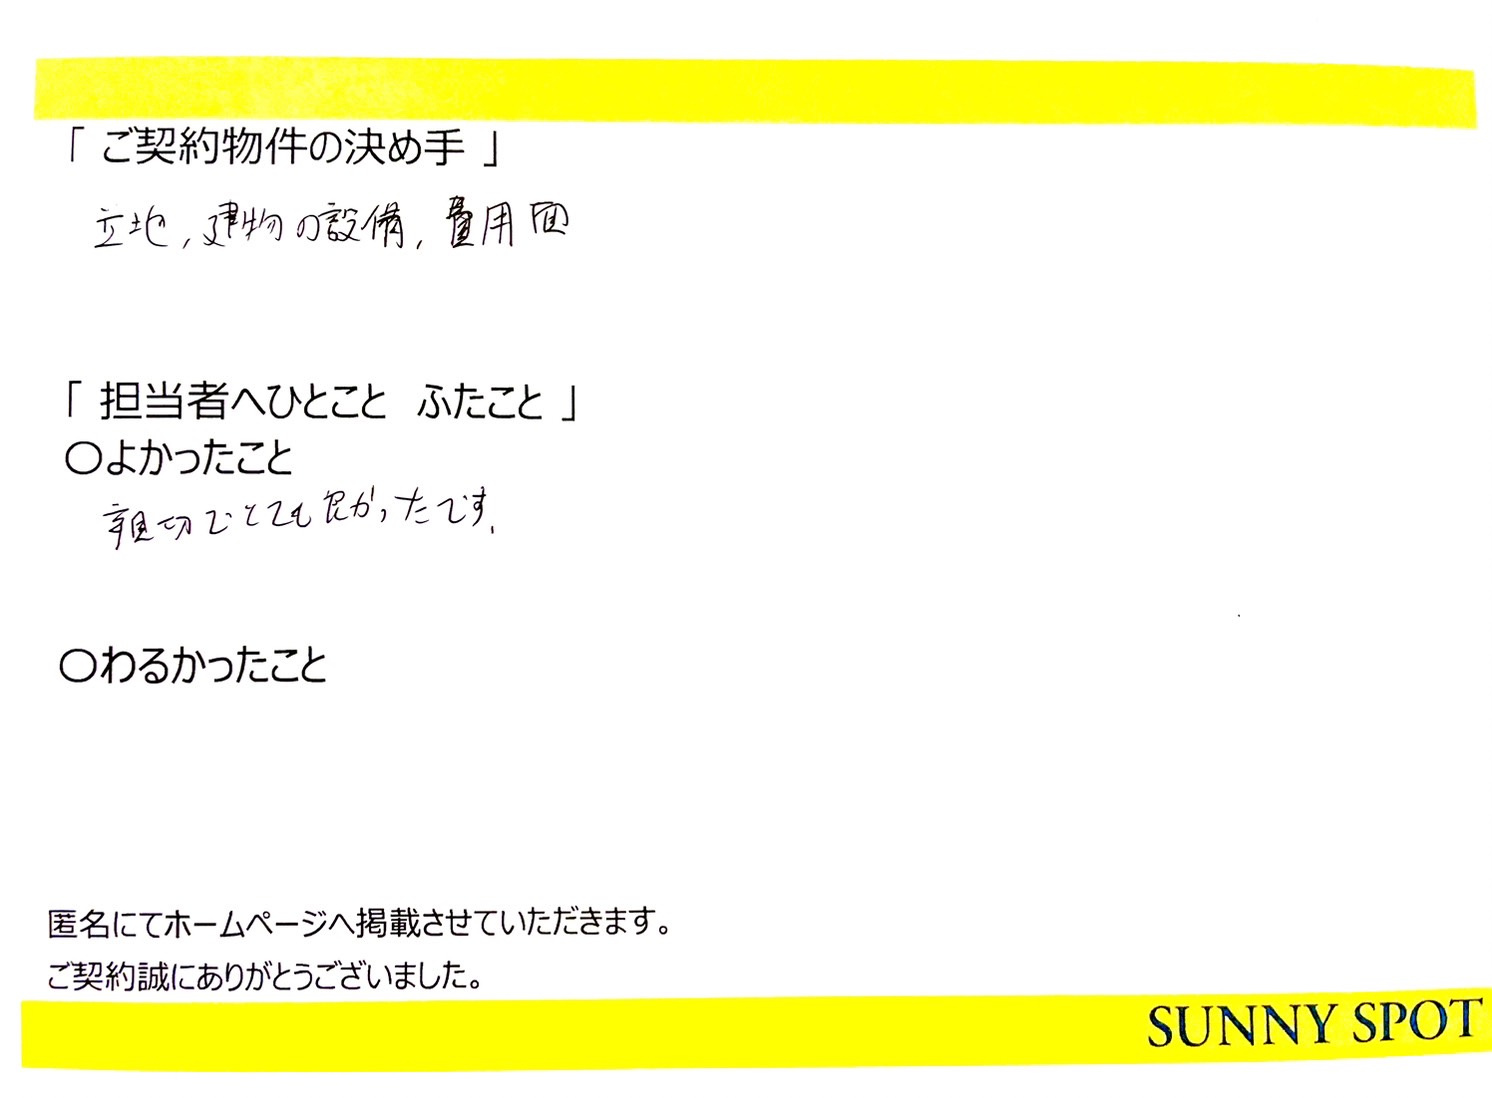 「 ご契約物件の決め手 」
立地, 建物の設備, 費用面
「 担当者へひとこと ふたこと 」
〇よかったこと
親切でとても良かったです。
〇わるかったこと
匿名にてホームページへ掲載させていただきます。
ご契約誠にありがとうございました。
SUNNY SPOT